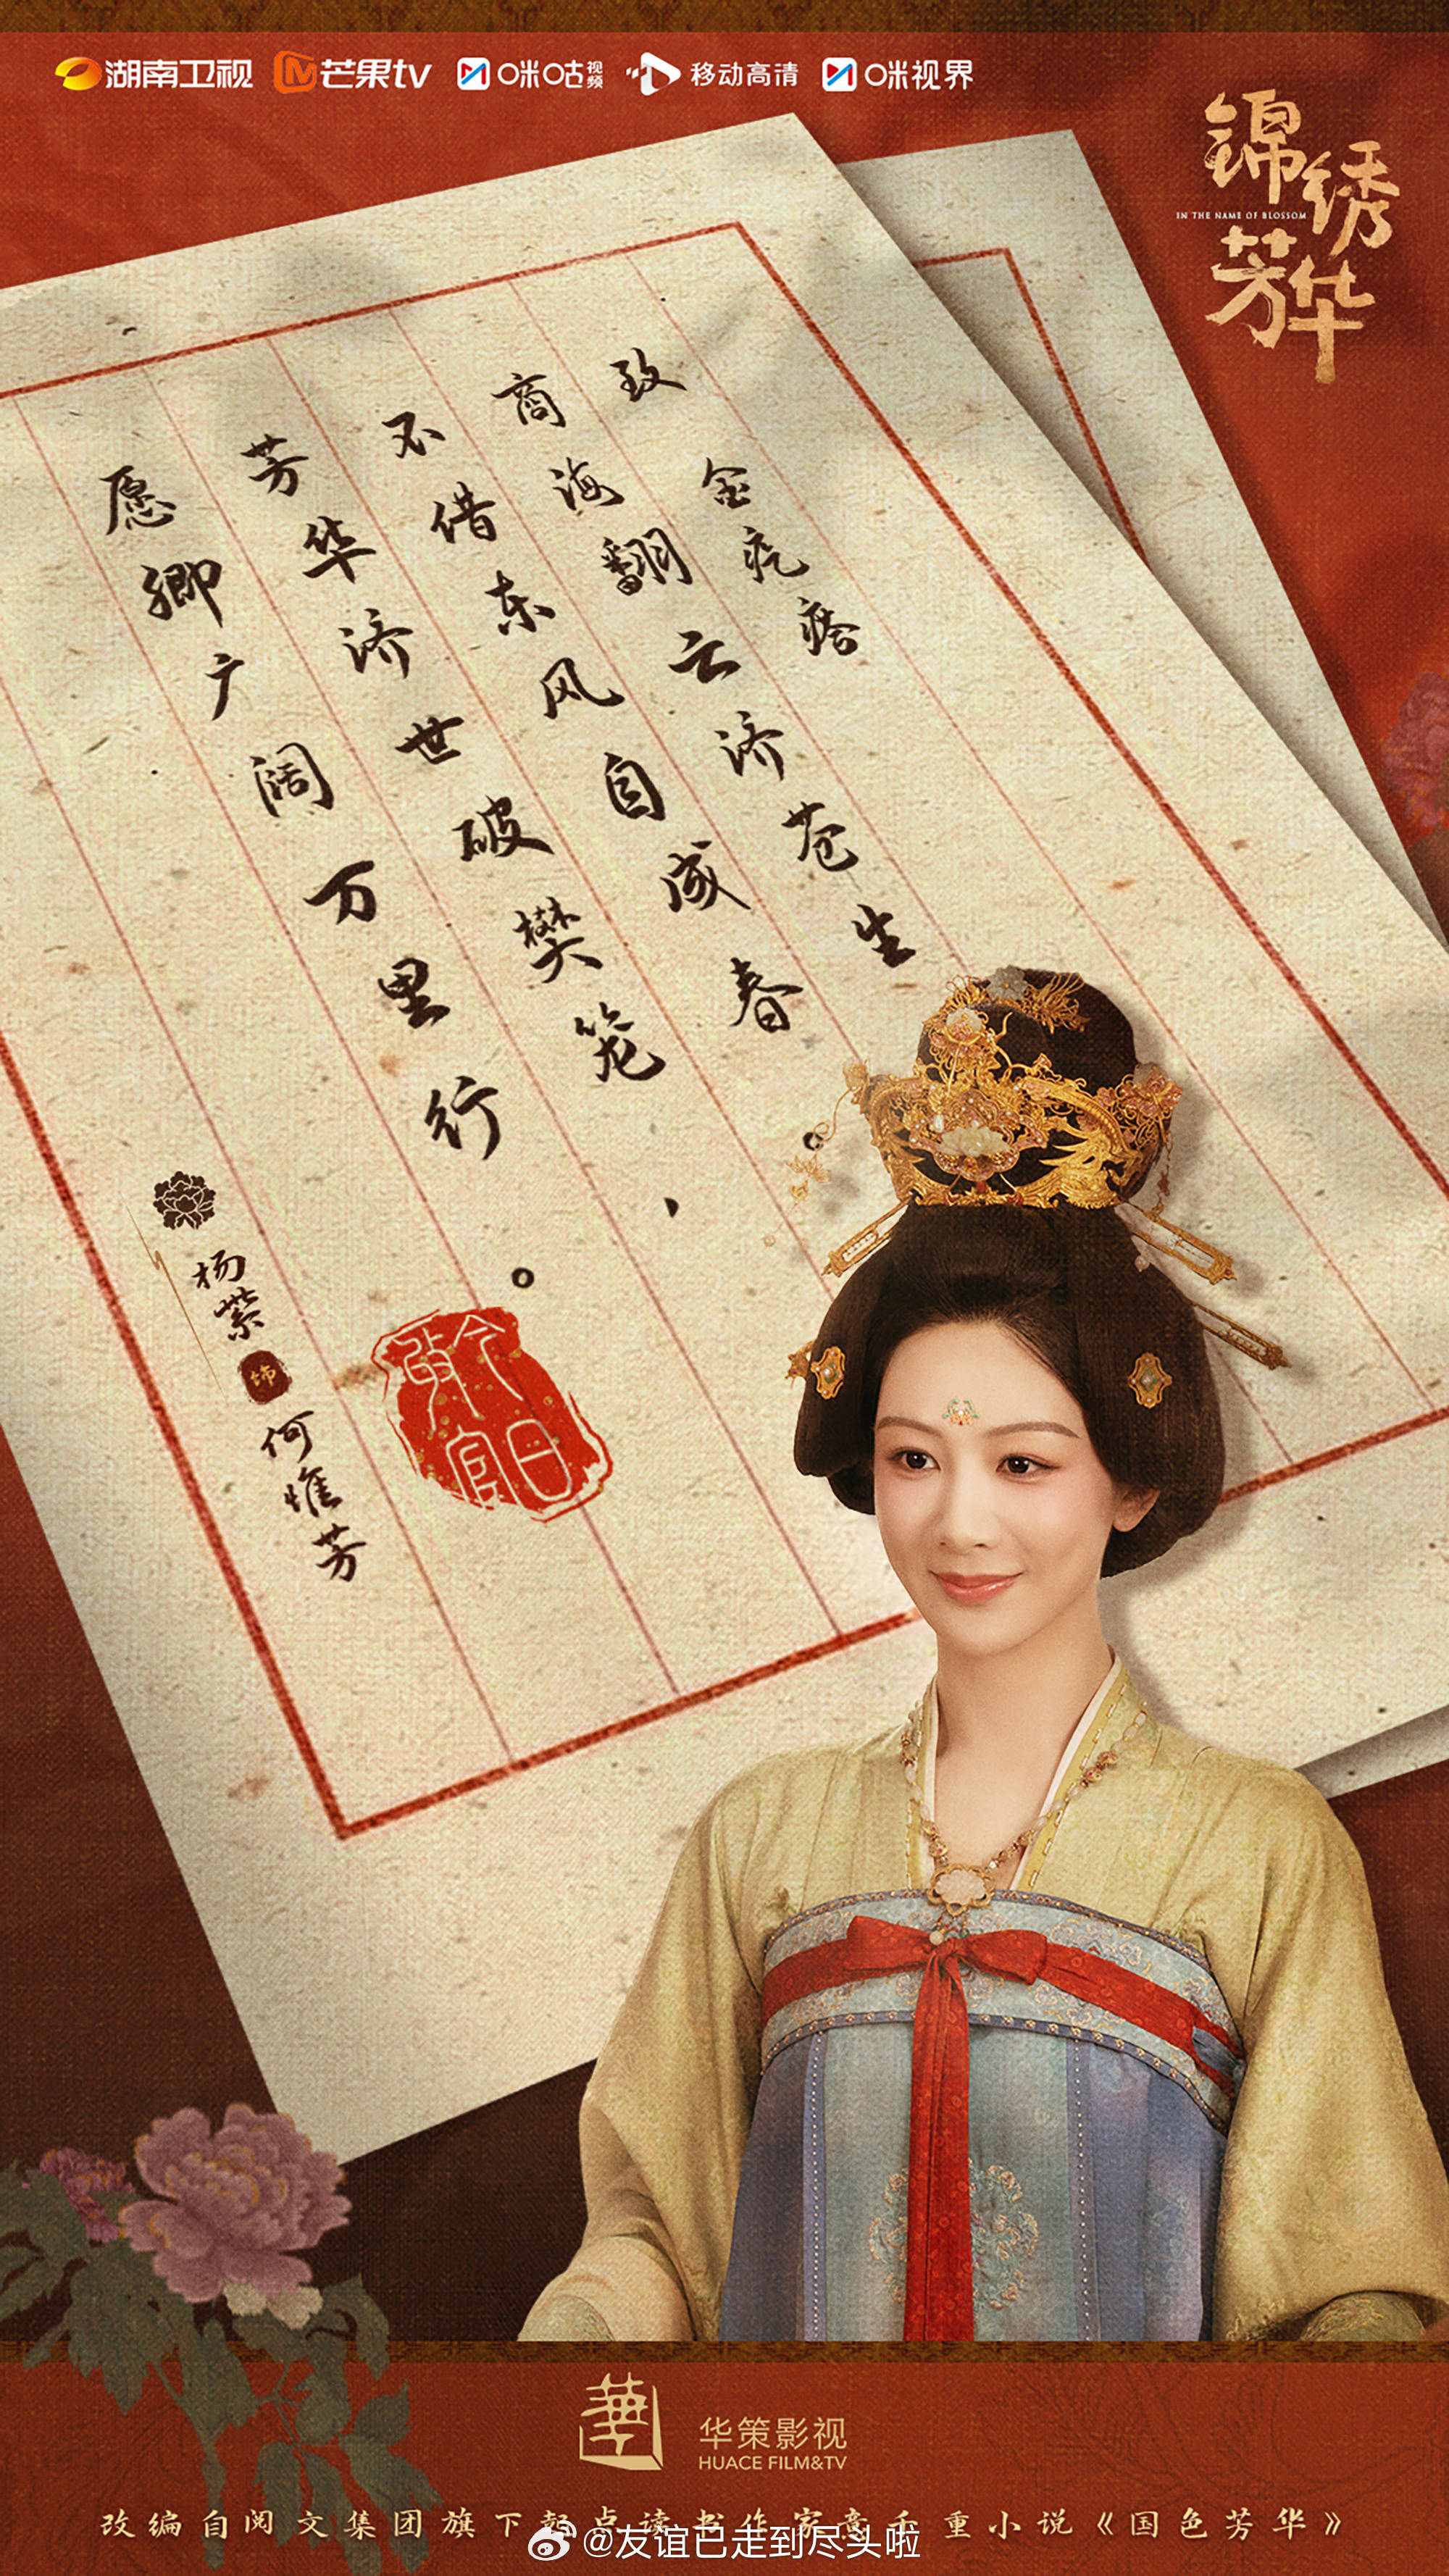 湖南卫视 芒果tv 咪咕视频 移动高清 咪视界
锦绣芳华
IN THE NAME OF BLOSSOM
致 金疙瘩
商海翻云济苍生
不借东风自成春。
芳华济世破樊笼、
愿卿广阔万里行。
杨紫 饰 何惟芳
今日
官
華
华策影视
HUACE FILM&TV
改编自阅文集团旗下起点读书作家意千重小说《国色芳华》
@友谊已走到尽头啦